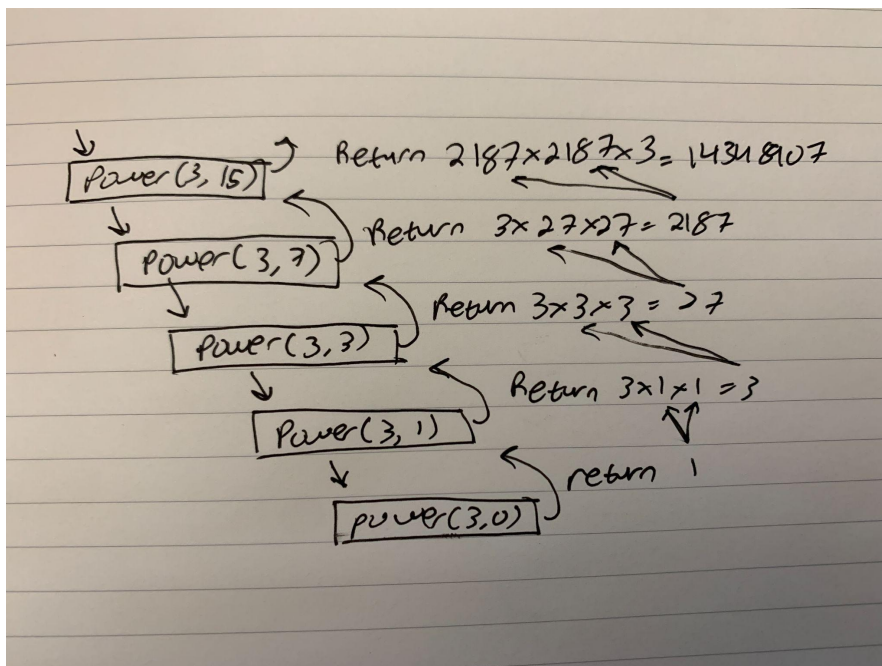 Return 2187×2187×3=14348907
Power(3, 15)
Return 3×27×27=2187
Power(3,7)
Return 3×3×3=27
Power(3,3)
Return 3×1×1=3
Power(3, 1)
return 1
power(3,0)